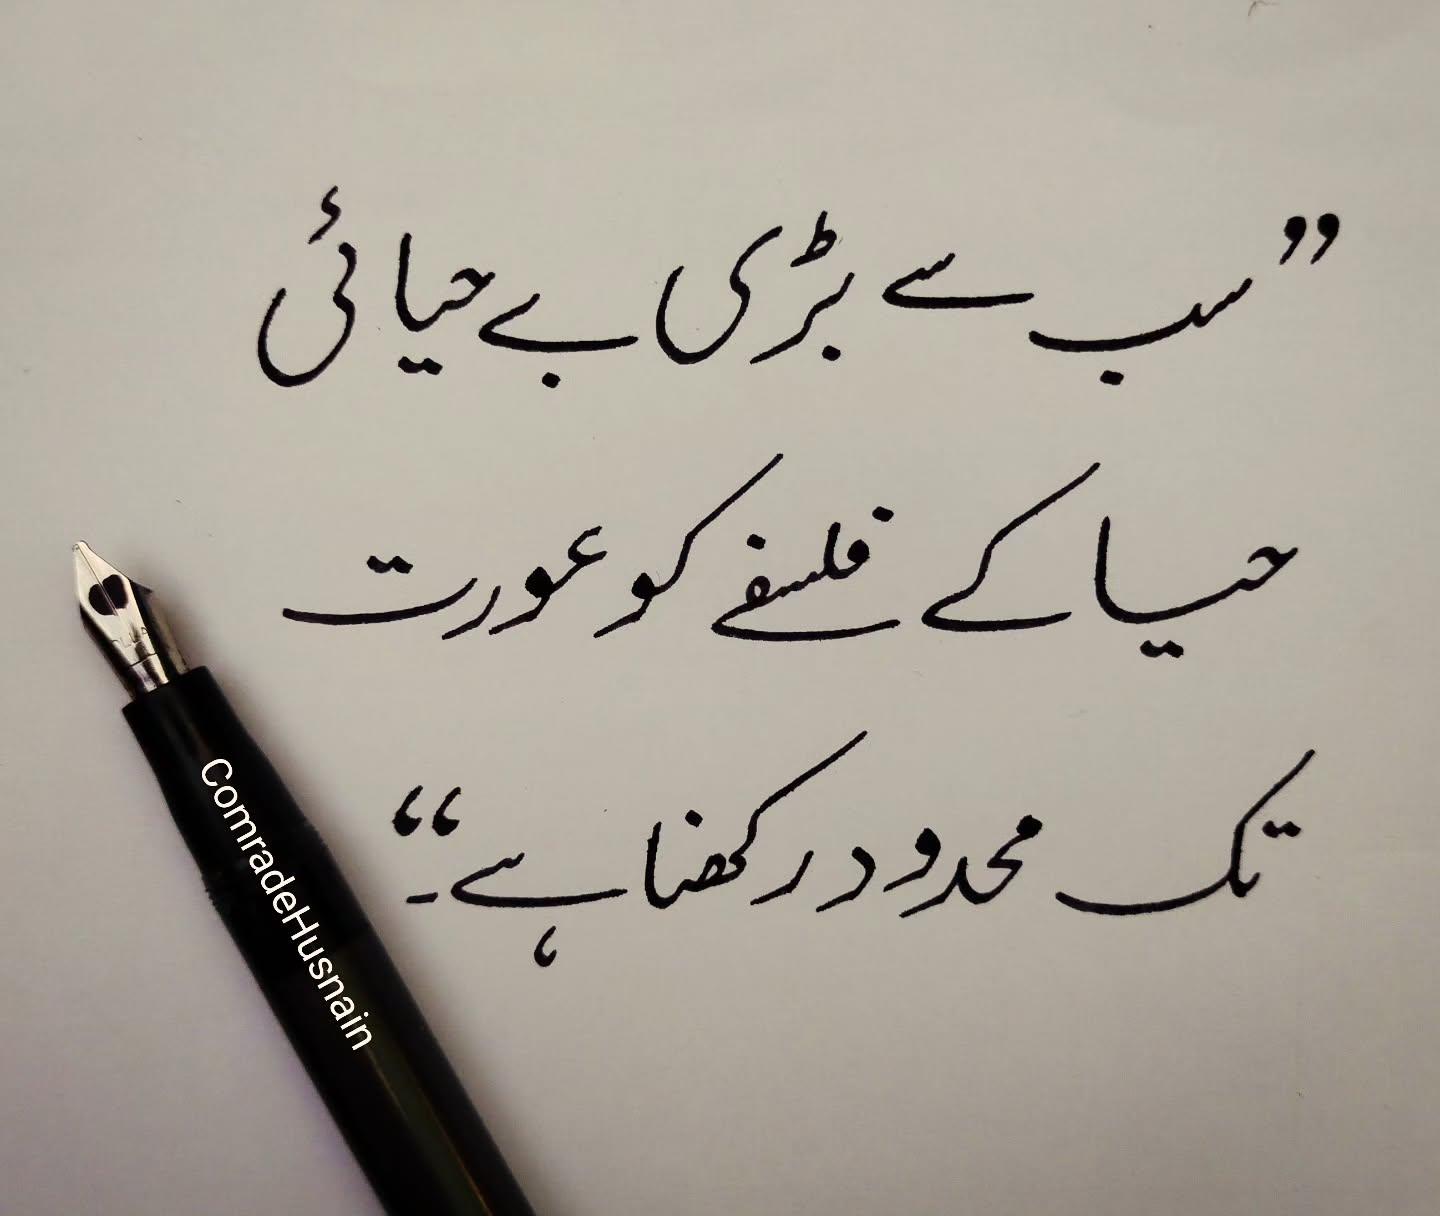 ”سب سے بڑی بے حیائی
حیا کے فلسفے کو عورت
تک محدود رکھنا ہے۔“
ComradeHusnain